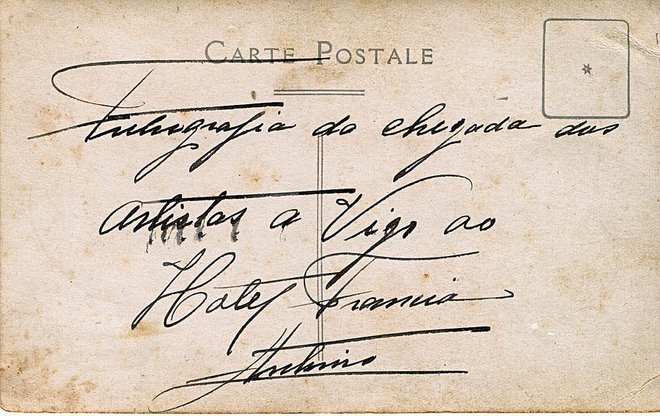 CARTE POSTALE
Fothografia da chegada dos
artistas a Vigo ao
Hotel Francia